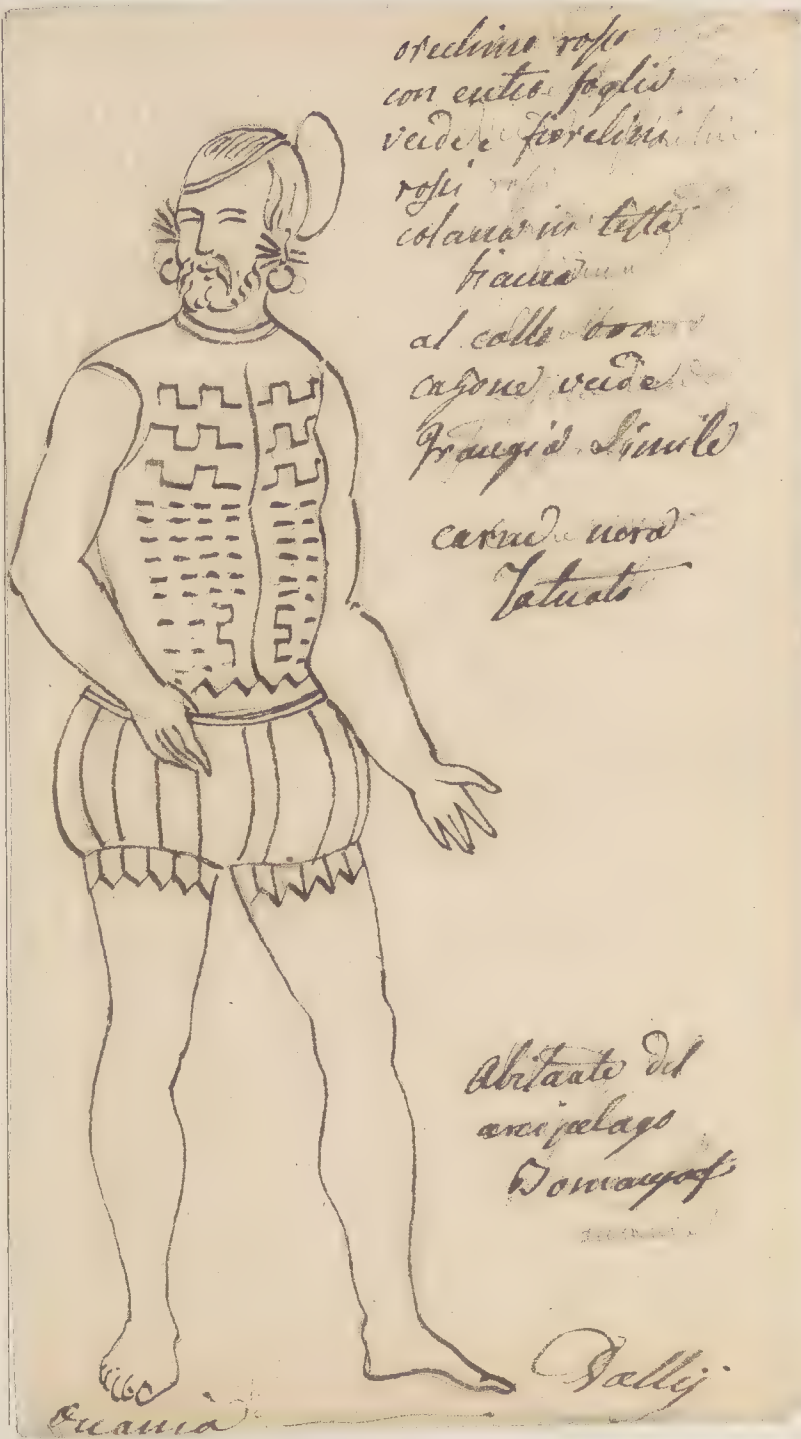 orechino rosso
con entro foglie
verde e fiorelini
rossi
colana in testa
bianca
al collo oro
casone verde
frangia simile
carne nera
Tatuato
Abitante del
arcipelago
Vallij
Oceania